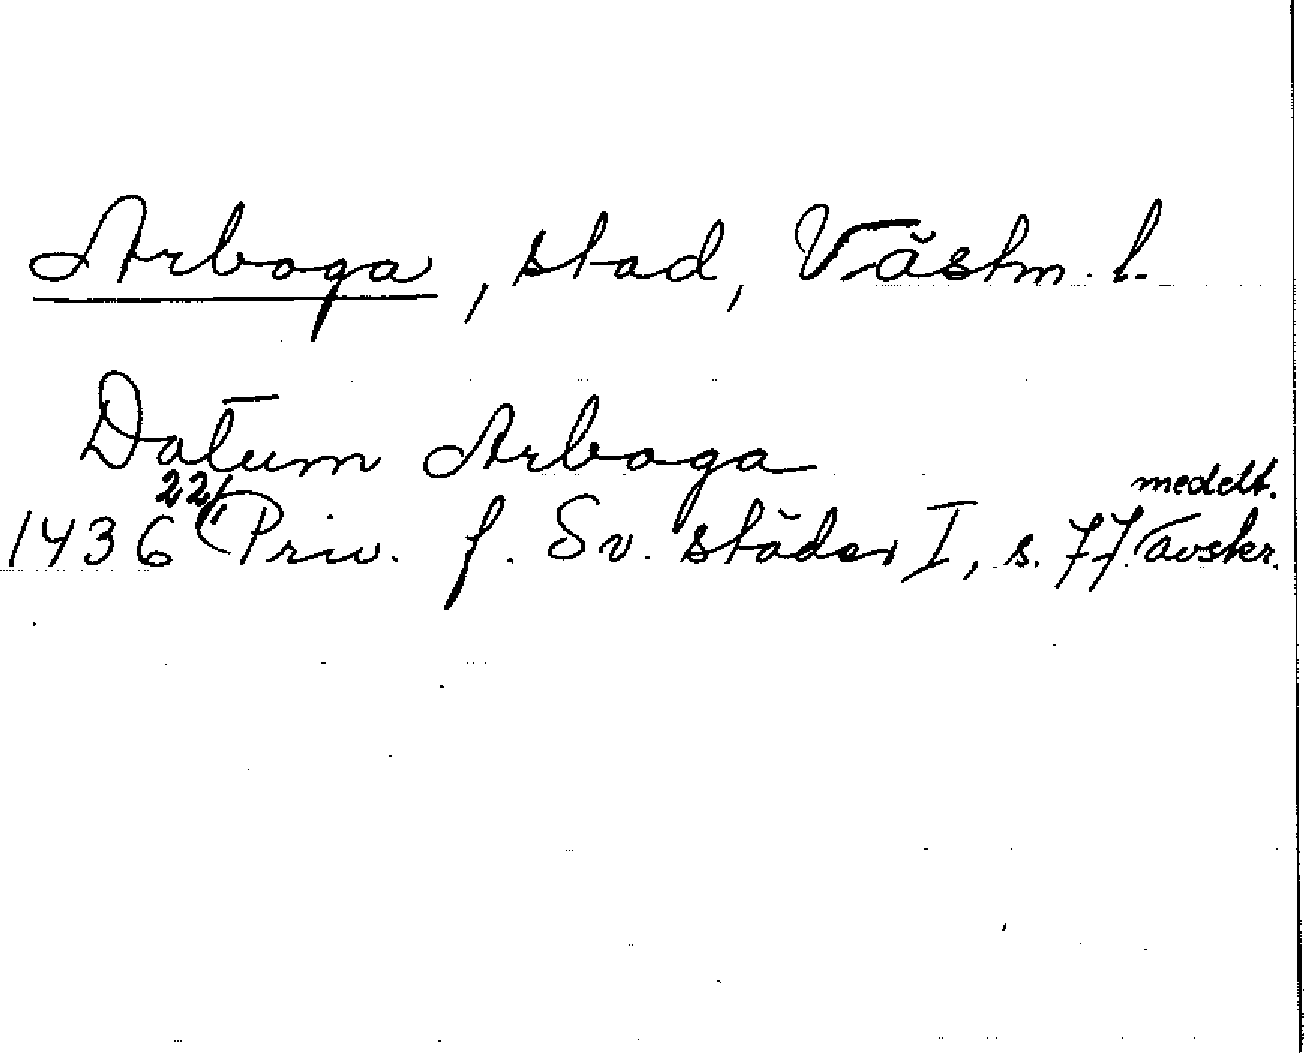 Arboga, stad, Västm. l.
Datum Arboga
1436 22/1 Priv. f. Sv. städer I, s. 77. medelt. avskr.